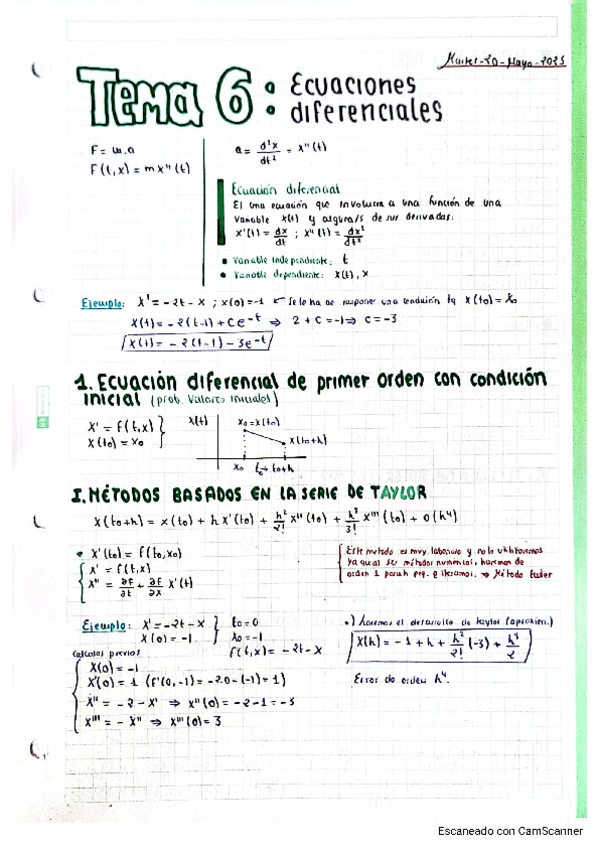 Martes-20-Mayo-2025
Tema 6: Ecuaciones diferenciales
F = m.a
F(t,x) = m x''(t)
a = d²x/dt² = x''(t)
Ecuación diferencial
El una ecuación que involucra a una función de una
variable x(t) y alguna/s de sus derivadas:
x'(t) = dx/dt ; x''(t) = dx²/dt²
• Variable independiente: t
• Variable dependiente: x(t), x
Ejemplo: x' = -2t - x ; x(0) = -1 ← Se le ha de imponer una condición tq x(t₀) = x₀
x(t) = -2(t-1) + Ce^-t ⇒ 2 + C = -1 ⇒ C = -3
x(t) = -2(t-1) - 3e^-t
1. Ecuación diferencial de primer orden con condición
inicial (prob. Valores iniciales)
x' = f(t,x)
x(t₀) = x₀
x(t)
x₀ = x(t₀)
x(t₀+h)
x₀ t₀ → t₀+h
I. MÉTODOS BASADOS EN LA SERIE DE TAYLOR
x(t₀+h) = x(t₀) + h x'(t₀) + h²/2! x''(t₀) + h³/3! x'''(t₀) + O(h⁴)
• x'(t₀) = f(t₀,x₀)
x' = f(t,x)
x'' = ∂f/∂t + ∂f/∂x x'(t)
Este metodo es muy laborioso y no lo utilizaremos
ya que al ser métodos numericos, haremos de
orden 1 para h peq. e iteramos. → Método Euler
Ejemplo: x' = -2t - x
x(0) = -1
t₀ = 0
x₀ = -1
f(t,x) = -2t - x
•) hacemos el desarrollo de taylor (aproxim.)
x(h) = -1 + h + h²/2! (-3) + h³/2
Error de orden h⁴.
Calculos previos
x(0) = -1
x'(0) = 1 (f(0,-1) = -2·0 - (-1) = 1)
x'' = -2 - x' ⇒ x''(0) = -2 - 1 = -3
x''' = - x'' ⇒ x'''(0) = 3
Escaneado con CamScanner